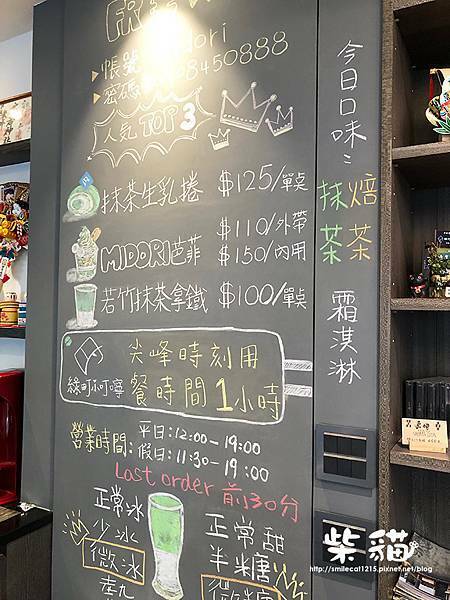 帳號
dori
密碼
8450888
人氣 TOP 3
抹茶生乳捲 $125/單點
MIDORI芭菲 $110/外帶
$150/內用
若竹抹茶拿鐵 $100/單點
尖峰時刻用
餐時間1小時
營業時間: 平日:12:00-19:00
假日:11:30-19:00
Last order 前30分
正常冰
少冰
微冰
正常甜
半糖
今日口味:
抹茶
焙茶
霜淇淋
柴貓
http://smilecat1215.pixnet.net/blog